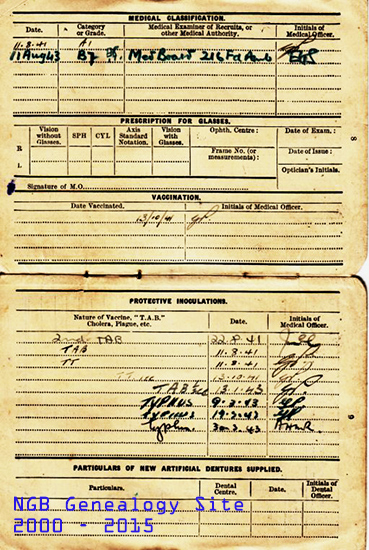 MEDICAL CLASSIFICATION.
Date. Category or Grade. Medical Examiner of Recruits, or other Medical Authority. Initials of Medical Officer.
11.3.41 A1
11 Aug 43 B7 Med Board 216 Fd Amb
PRESCRIPTION FOR GLASSES.
Vision without Glasses. SPH CYL Axis Standard Notation. Vision with Glasses. Ophth. Centre: Date of Exam.:
R Frame No. (or measurements): Date of Issue:
L Optician's Initials.
Signature of M.O.
8
VACCINATION.
Date Vaccinated. Initials of Medical Officer.
13/10/41
PROTECTIVE INOCULATIONS.
Nature of Vaccine, "T.A.B." Cholera, Plague, etc. Date. Initials of Medical Officer.
2nd TAB 22.8.41
TAB 11.3.41
TT 11.3.41
TT
TAB 13.1.43
TYPHUS 9.2.43
TYPHUS 19.2.43
Typhus 30.3.43
9
PARTICULARS OF NEW ARTIFICIAL DENTURES SUPPLIED.
Particulars. Dental Centre. Date. Initials of Dental Officer.
NGB Genealogy Site
2000 - 2015